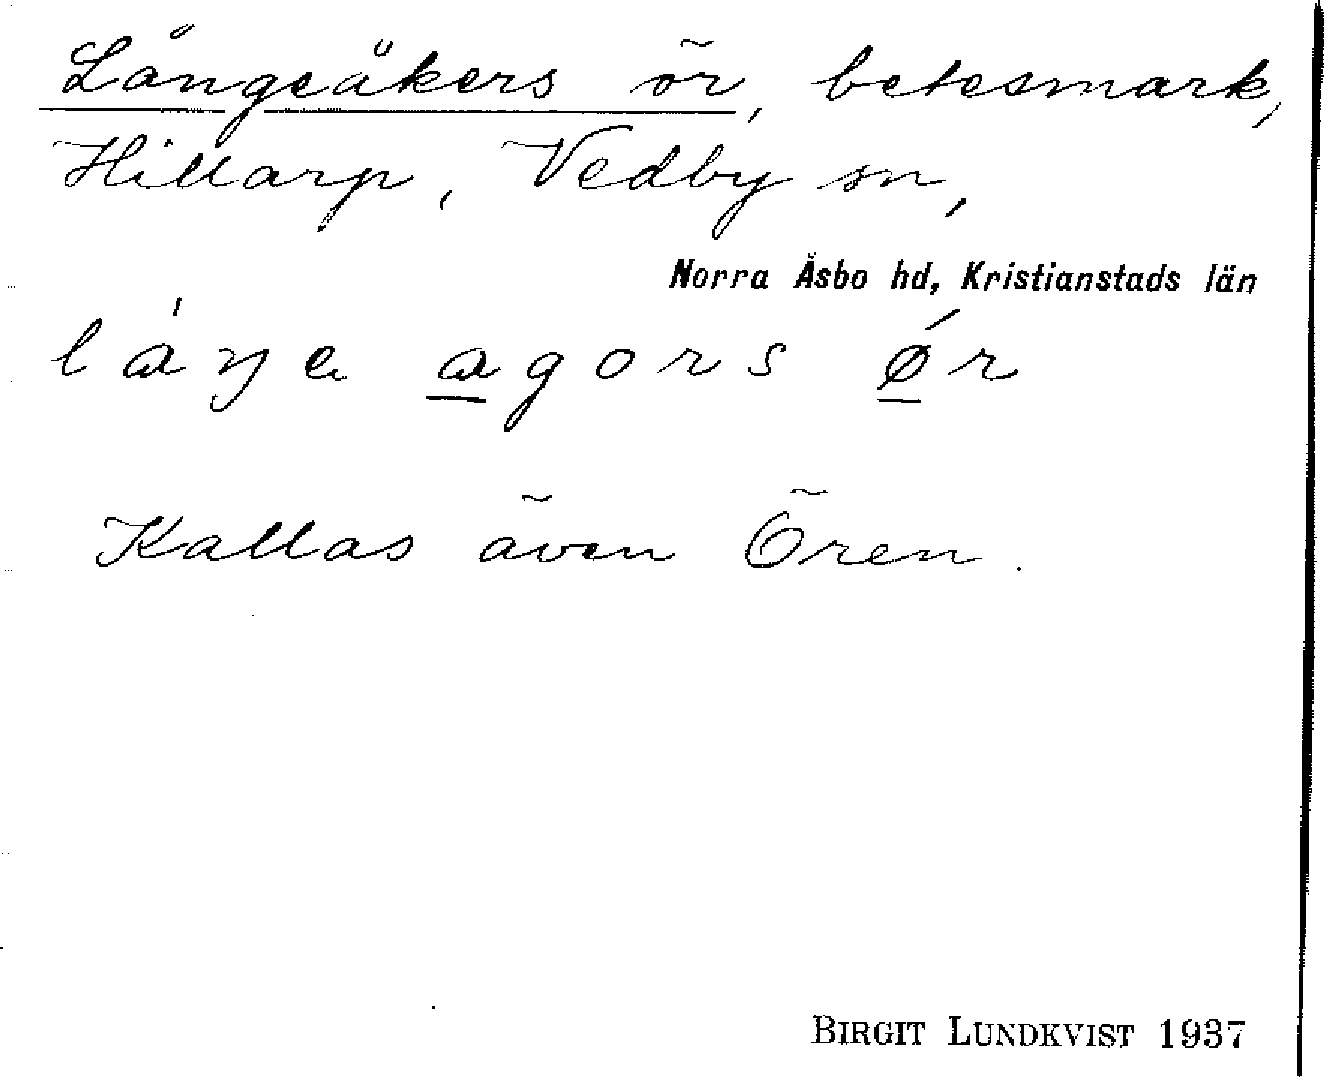 Långeåkers ör, betesmark,
Hillarp, Vedby sn,
Norra Åsbo hd, Kristianstads län
láŋe agors ǿr
Kallas även Ören.
BIRGIT LUNDKVIST 1937